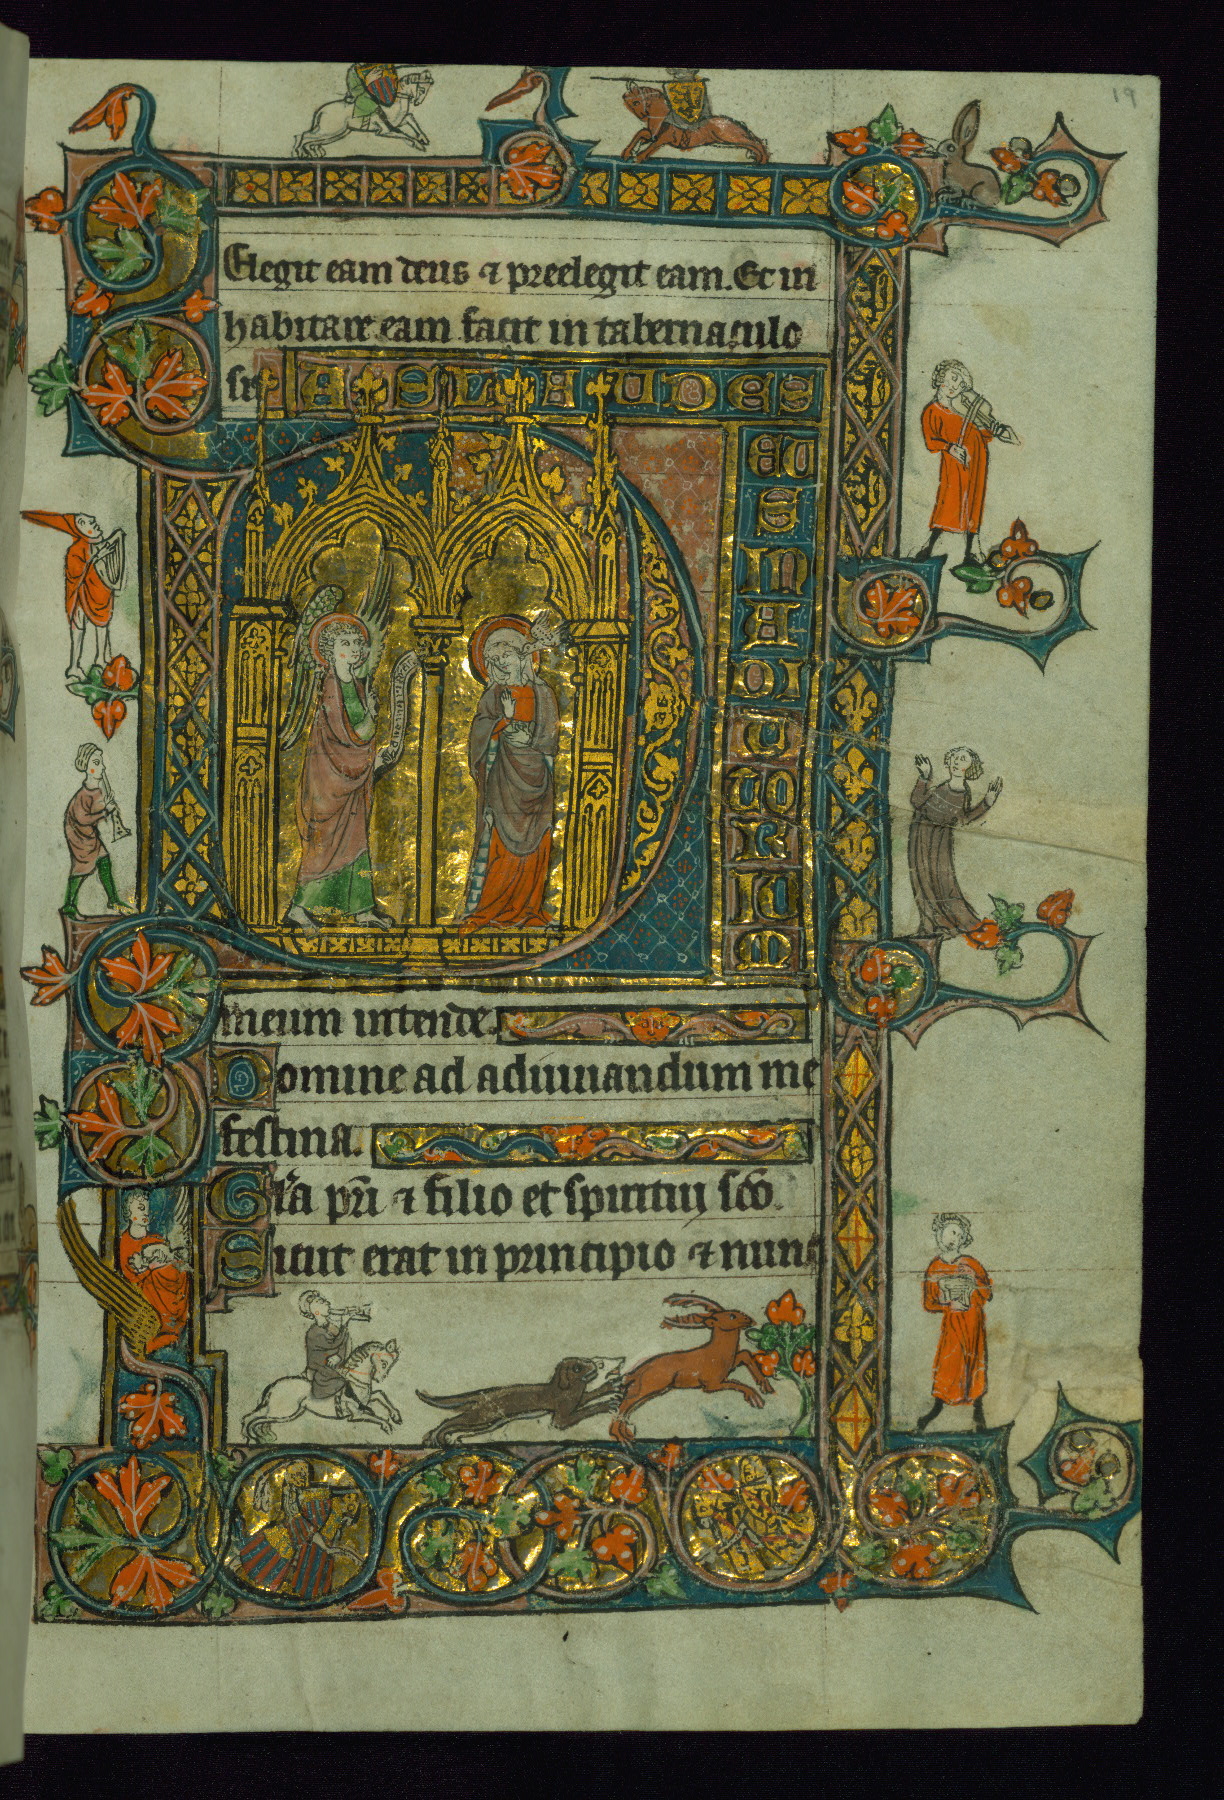 19
Elegit eam deus ⁊ preelegit eam. Et in
habitare eam facit in tabernaculo
AS LAUDES
meum intende.
Domine ad adiuuandum me
festina.
Gl'a pri ⁊ filio et spiritui sco.
Sicut erat in principio ⁊ nunc